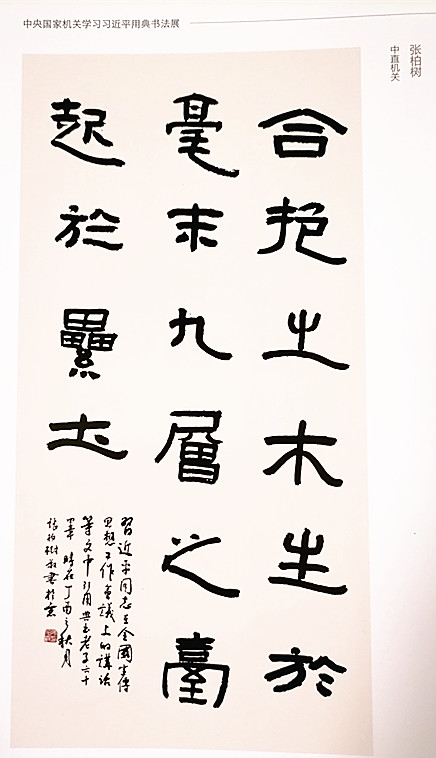 中央国家机关学习习近平用典书法展
张柏树
中直机关
合抱之木生於
毫末九層之臺
起於纍土
習近平同志在全國宣傳
思想工作會議上的講話
等文中引用典出老子六十
四章 時在丁酉之秋月
張柏樹敬書於京